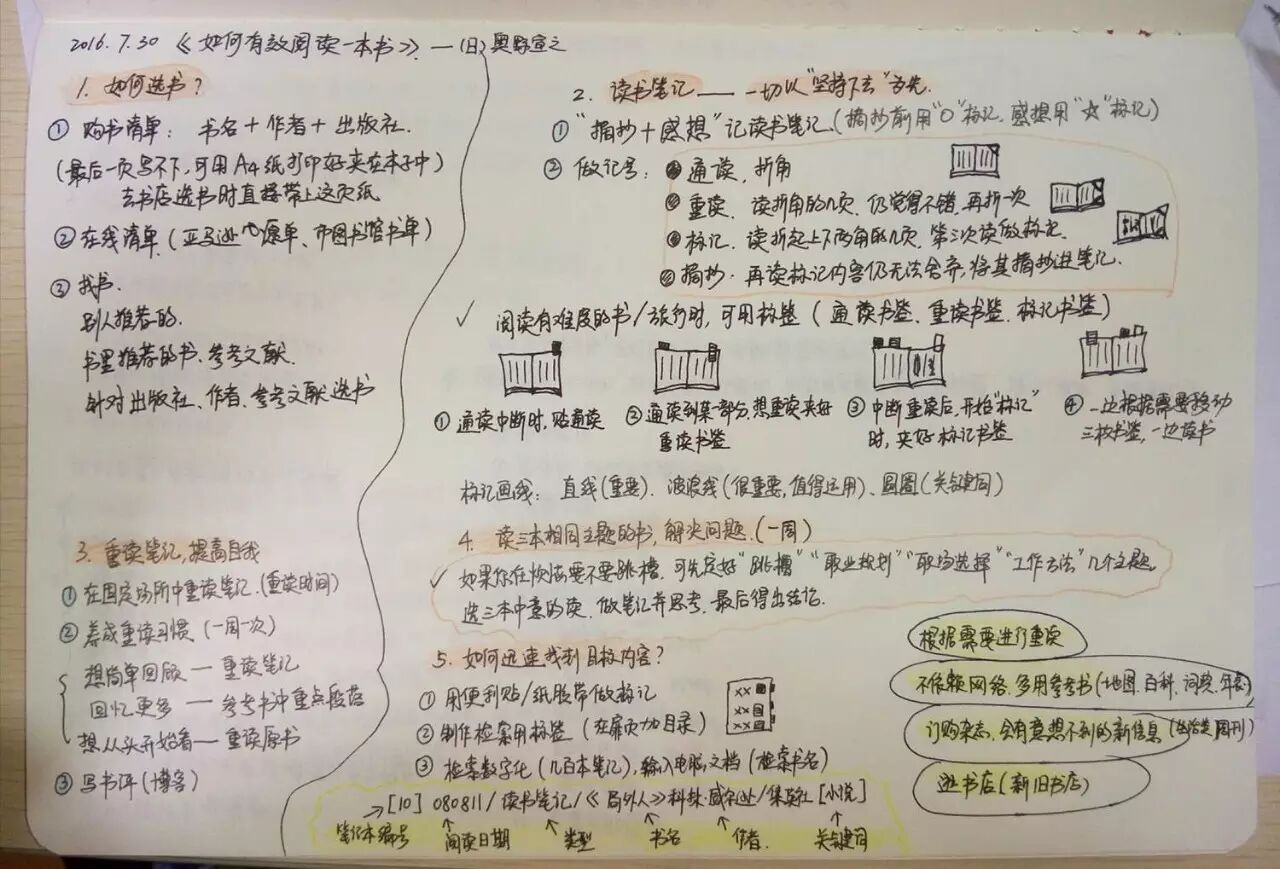 2016.7.30 《如何有效阅读一本书》—(日)奥野宣之
1. 如何选书?
① 购书清单: 书名+作者+出版社.
(最后一页写不下,可用A4纸打印好夹在本子中)
去书店选书时直接带上这页纸
② 在线清单(亚马逊心愿单、市图书馆书单)
③ 找书.
别人推荐的.
书里推荐的书、参考文献.
针对出版社、作者、参考文献选书
2. 读书笔记——一切以“坚持下去”为先.
① “摘抄+感想”记读书笔记.(摘抄前用“○”标记、感想用“☆”标记)
② 做记号: ① 通读、折角
② 重读、读折角的几页、仍觉得不错,再折一次
③ 标记、读折起上下两角的几页、第三次读做标记.
④ 摘抄. 再读标记内容仍无法舍弃,将其摘抄进笔记.
✓ 阅读有难度的书/旅行时,可用标签(通读书签、重读书签、标记书签)
① 通读中断时,贴通读
② 通读到某一部分,想重读夹好
重读书签
③ 中断重读后,开始“标记”
时,夹好标记书签
④ 一边根据需要移动
三枚书签,一边读书
标记画线: 直线(重要)、波浪线(很重要,值得运用)、圆圈(关键词)
3. 重读笔记,提高自我
① 在固定场所中重读笔记.(重读时间)
② 养成重读习惯(一周一次)
想简单回顾—重读笔记
回忆更多—参考书中重点段落
想从头开始看—重读原书
③ 写书评(博客)
4. 读三本相同主题的书,解决问题.(一周)
✓ 如果你在烦恼要不要跳槽,可先定好“跳槽”“职业规划”“职场选择”“工作方法”几个主题.
选三本中意的读、做笔记并思考、最后得出结论.
5. 如何迅速找到目标内容?
① 用便利贴/纸胶带做标记
② 制作检索用标签(在扉页加目录)
③ 检索数字化(几百本笔记),输入电脑文档(检索书名)
xx
xx
xx
→[10] 080811/读书笔记/《局外人》科林·威尔逊/集英社[小说]
笔记本编号 阅读日期 类型 书名 作者. 关键词
根据需要进行重读
不依赖网络、多用参考书(地图、百科、词典、年表)
订购杂志,会有意想不到的新信息(生活类周刊)
逛书店(新旧书店)